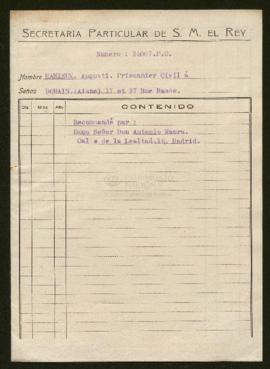 SECRETARÍA PARTICULAR DE S. M. EL REY
Numero :
Nombre Augusti. Prisonnier Civil á
Señas BOHAIN.(Aisne).17 et 37 Rue Basse.
Día Mes Año CONTENIDO
Recommandé par :
Señor Don Antonio Maura.
Calle de la Lealtad.18. Madrid.